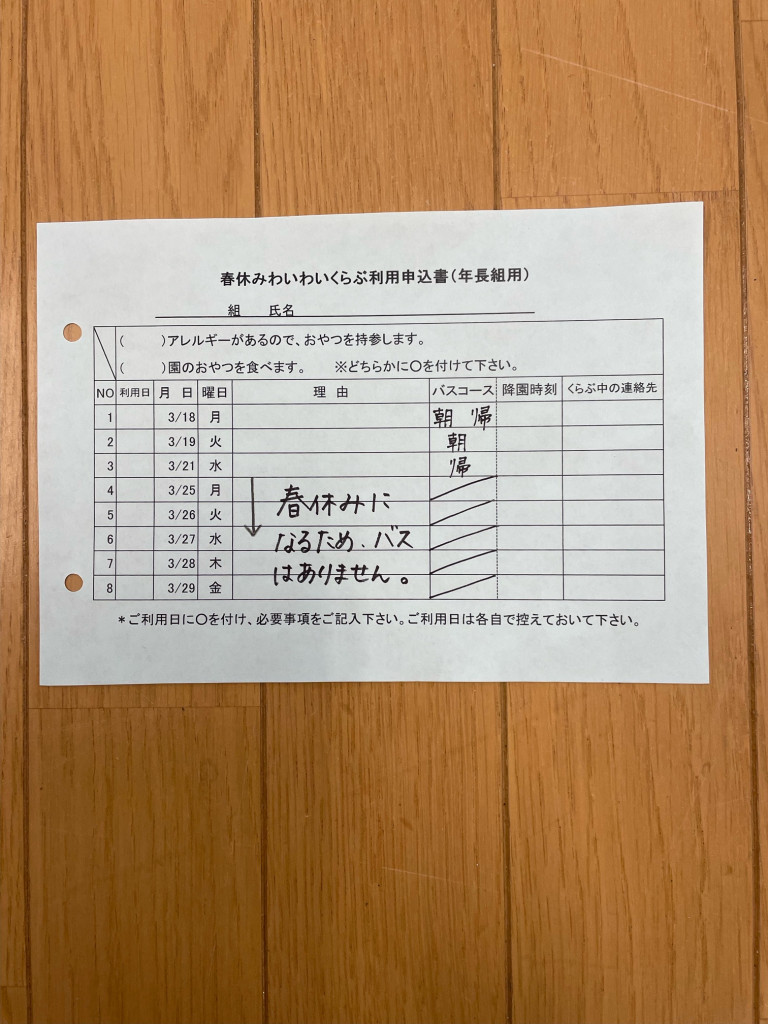 春休みわいわいくらぶ利用申込書(年長組用)
組 氏名
( )アレルギーがあるので、おやつを持参します。
( )園のおやつを食べます。 ※どちらかに〇を付けて下さい。
NO 利用日 月 日 曜日 理 由 バスコース 降園時刻 くらぶ中の連絡先
1 3/18 月 朝 帰
2 3/19 火 朝
3 3/21 水 帰
4 3/25 月
5 3/26 火
6 3/27 水
7 3/28 木
8 3/29 金
↓ 春休みに
なるため、バス
はありません。
*ご利用日に〇を付け、必要事項をご記入下さい。ご利用日は各自で控えておいて下さい。